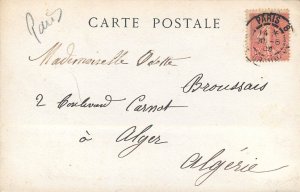 Paris
CARTE POSTALE
PARIS
Mademoiselle Odette
Broussais
2 Boulevard Carnot
à Alger
Algérie